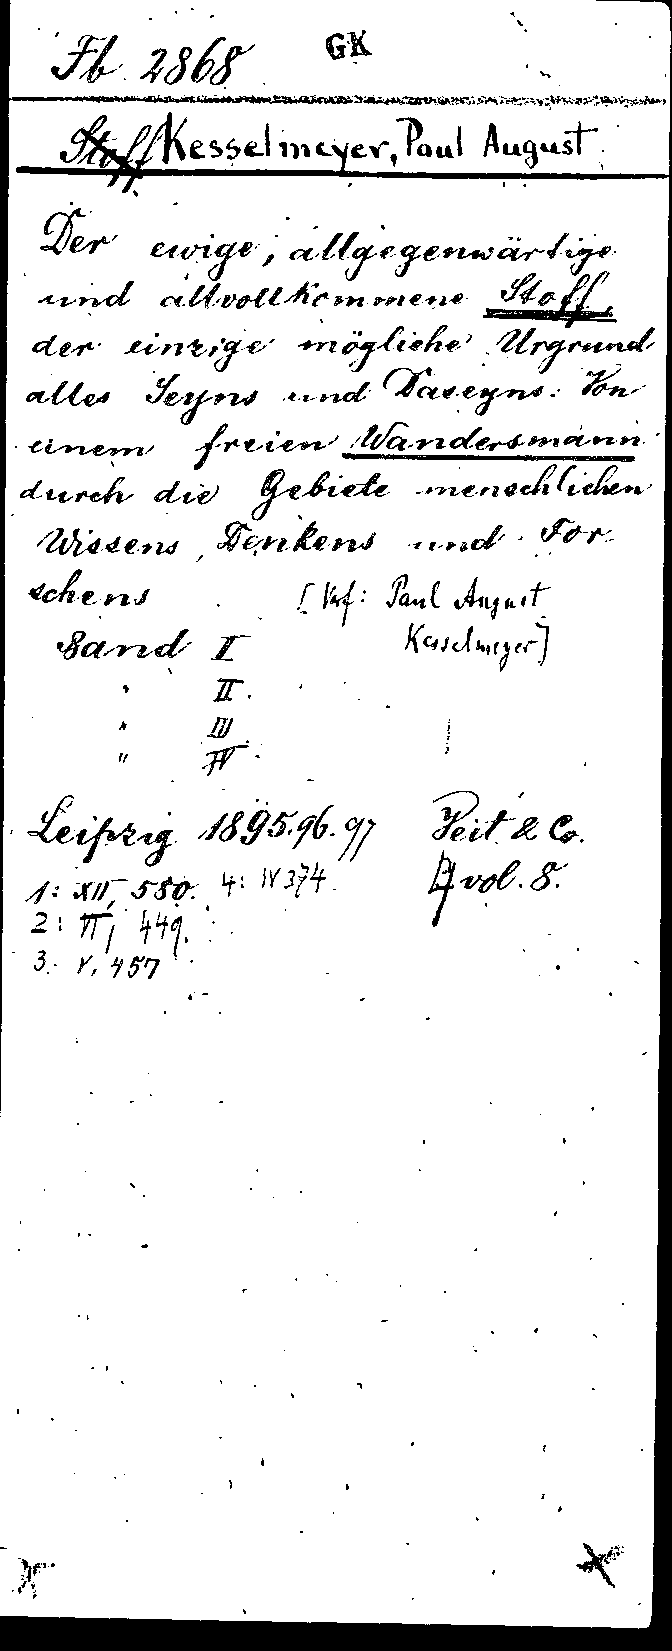 Fb 2868 GK
Stoff Kesselmeyer, Paul August
Der ewige, allgegenwärtige
und allvollkommene Stoff,
der einzige mögliche Urgrund
alles Seyns und Daseyns: Von
einem freien Wandersmann
durch die Gebiete menschlichen
Wissens, Denkens und For-
schens [Verf: Paul August
Band I Kesselmeyer]
" II.
" III
" IV
Leipzig 1895.96.97 Veit & Co.
1: XII, 580. 4: IV 374 4 vol. 8.
2: VI, 449.
3: V, 457